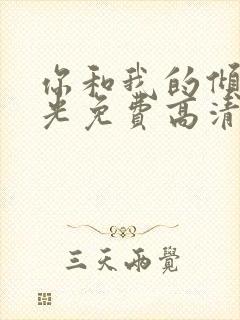 你和我的倾
光免费高清
三天两觉